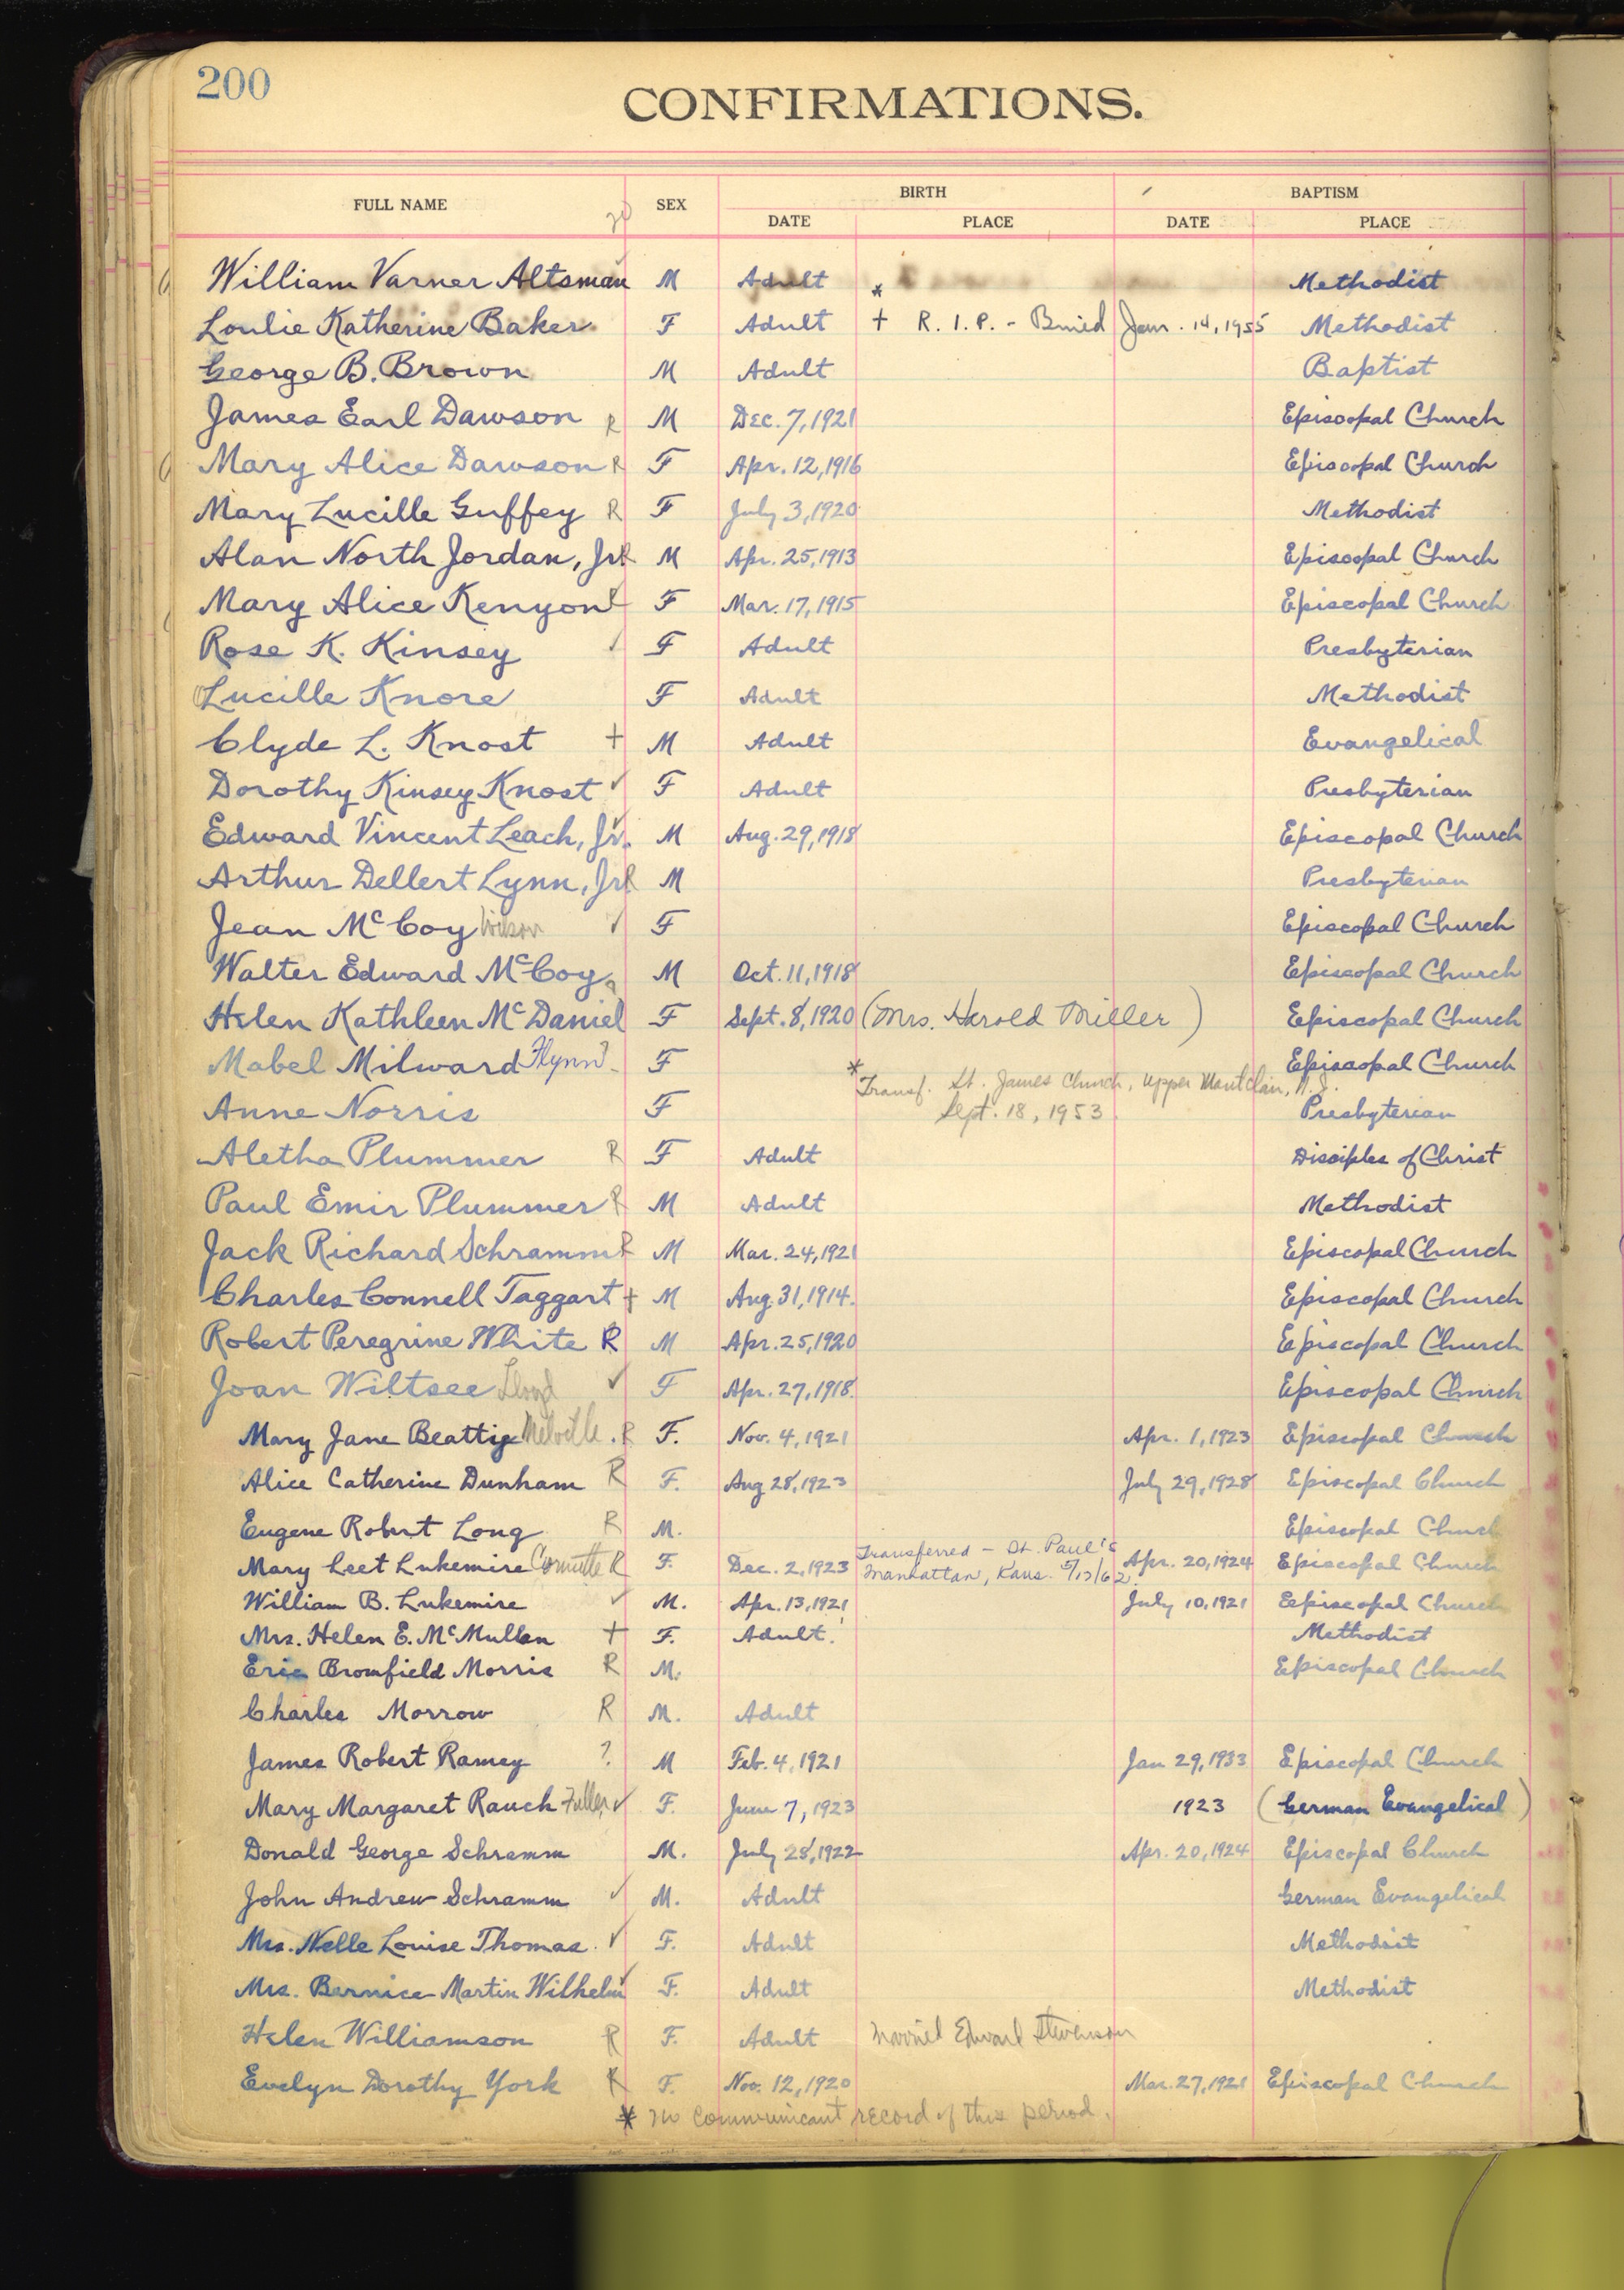 200
CONFIRMATIONS.
FULL NAME SEX BIRTH BAPTISM
DATE PLACE DATE PLACE
William Varner Altsman M Adult * Methodist
Loulie Katherine Baker F Adult + R.I.P. - Buried Jan. 14, 1955 Methodist
George B. Brown M Adult Baptist
James Earl Dawson R M Dec. 7, 1921 Episcopal Church
Mary Alice Dawson R F Apr. 12, 1916 Episcopal Church
Mary Lucille Guffey R F July 3, 1920 Methodist
Alan North Jordan, Jr. R M Apr. 25, 1913 Episcopal Church
Mary Alice Kenyon F Mar. 17, 1915 Episcopal Church
Rose K. Kinsey ✓ F Adult Presbyterian
Lucille Knore F Adult Methodist
Clyde L. Knost + M Adult Evangelical
Dorothy Kinsey Knost ✓ F Adult Presbyterian
Edward Vincent Leach, Jr. ✓ M Aug. 29, 1918 Episcopal Church
Arthur Dellert Lynn, Jr. R M Presbyterian
Jean McCoy Wilson ✓ F Episcopal Church
Walter Edward McCoy M Oct. 11, 1918 Episcopal Church
Helen Kathleen McDaniel F Sept. 8, 1920 (Mrs. Harold Miller) Episcopal Church
Mabel Milward Flynn? F Episcopal Church
* Transf. St. James Church, Upper Montclair, N.J.
Anne Norris F Sept. 18, 1953 Presbyterian
Aletha Plummer R F Adult Disciples of Christ
Paul Emir Plummer R M Adult Methodist
Jack Richard Schramm R M Mar. 24, 1921 Episcopal Church
Charles Connell Taggart + M Aug. 31, 1914. Episcopal Church
Robert Peregrine White R M Apr. 25, 1920 Episcopal Church
Joan Wiltsee Lloyd ✓ F Apr. 27, 1918. Episcopal Church
Mary Jane Beattie Melville. R F. Nov. 4, 1921 Apr. 1, 1923 Episcopal Church
Alice Catherine Dunham R F. Aug 28, 1923 July 29, 1928 Episcopal Church
Eugene Robert Long R M. Episcopal Church
Transferred - St. Paul's
Mary Leet Lukemire R F. Dec. 2, 1923 Manhattan, Kans. 5/17/62. Apr. 20, 1924 Episcopal Church
William B. Lukemire ✓ M. Apr. 13, 1921 July 10, 1921 Episcopal Church
Mrs. Helen E. McMullen + F. Adult. Methodist
Eric Bromfield Morris R M. Episcopal Church
Charles Morrow R M. Adult
James Robert Ramey ? M Feb. 4, 1921 Jan 29, 1933 Episcopal Church
Mary Margaret Rauch Fuller ✓ F. June 7, 1923 1923 (German Evangelical)
Donald George Schramm M. July 28, 1922 Apr. 20, 1924 Episcopal Church
John Andrew Schramm ✓ M. Adult German Evangelical
Mrs. Nelle Louise Thomas. ✓ F. Adult Methodist
Mrs. Bernice Martin Wilhelm ✓ F. Adult Methodist
Helen Williamson R F. Adult Married Edward Stevenson
Evelyn Dorothy York R F. Nov. 12, 1920 Mar. 27, 1921 Episcopal Church
* No communicant record of this period.